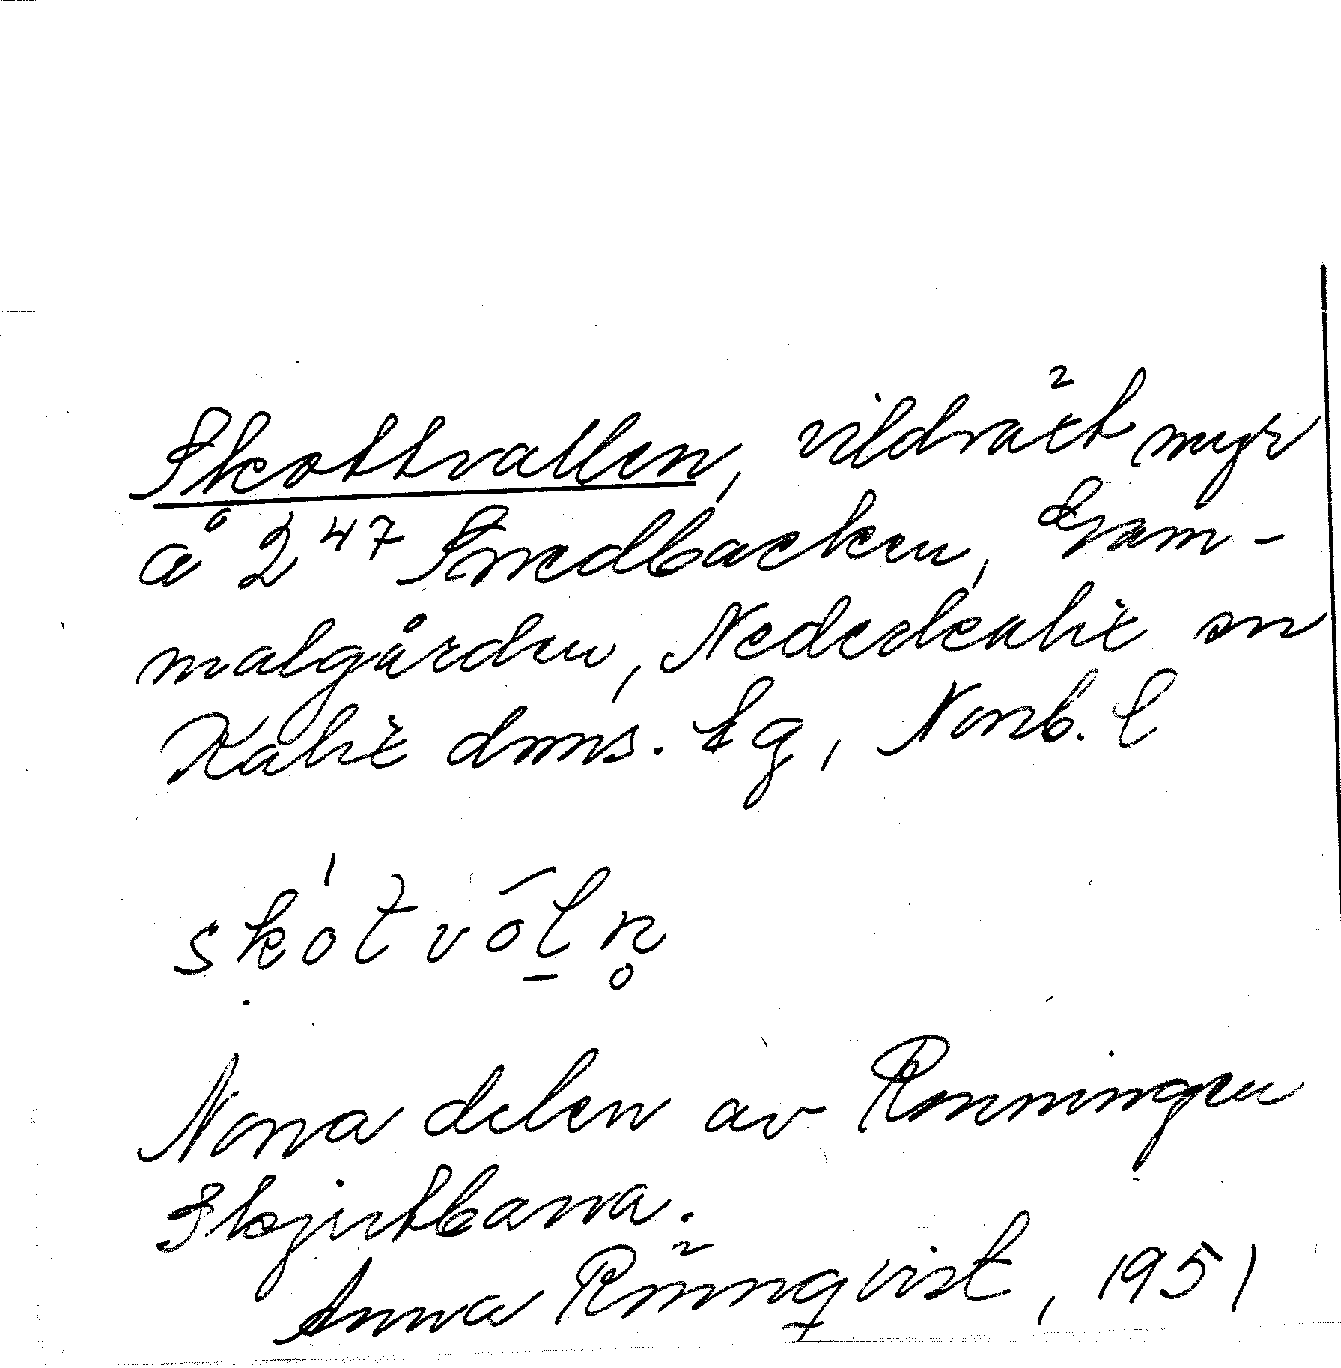 Skottvallen, vildväxt myr
å 2⁴⁷ Smedbacken, Gam-
malgården, Nederkalix sn
Kalix doms. lg, Norrb. l
skòtvṓḻn̥
Norra delen av Rönningen
Skjutbana.
Anna Rönnqvist, 1951